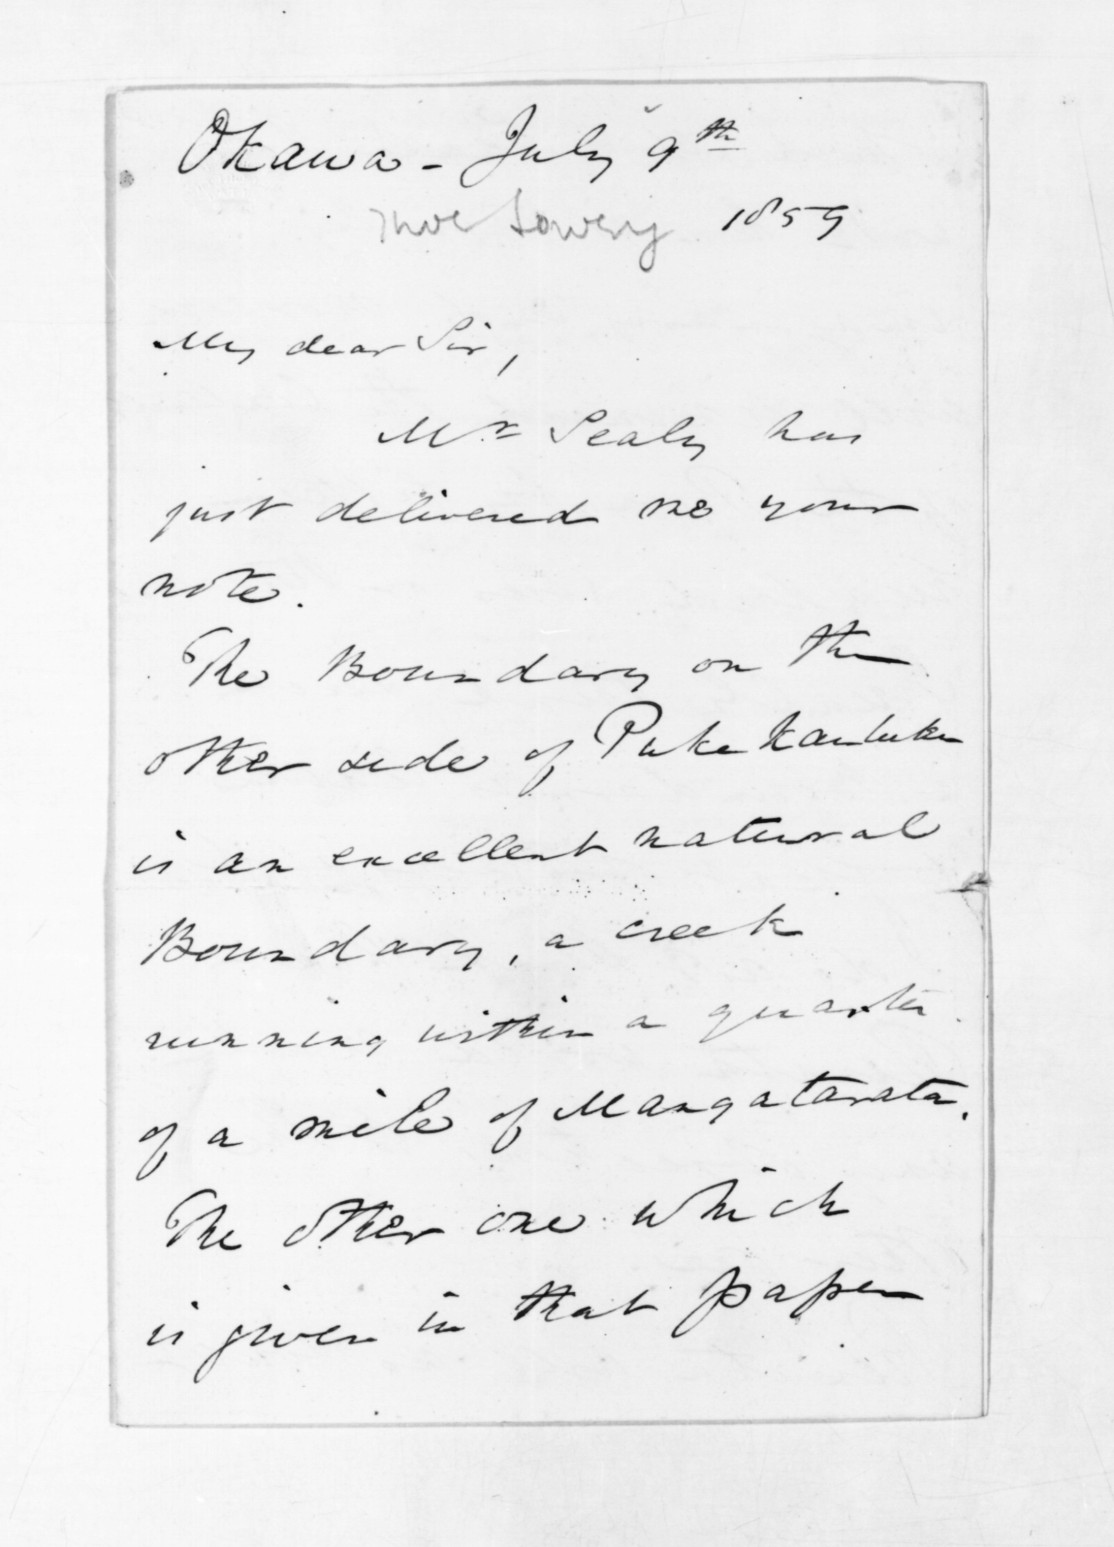 Okawa - July 9th
Thos Lowry 1859
My dear Sir,
Mr Sealy has
just delivered me your
note.
The Boundary on the
other side of Pukekautuku
is an excellent natural
Boundary, a creek
running within a quarter
of a mile of Mangatarata.
The other one which
is given in that paper